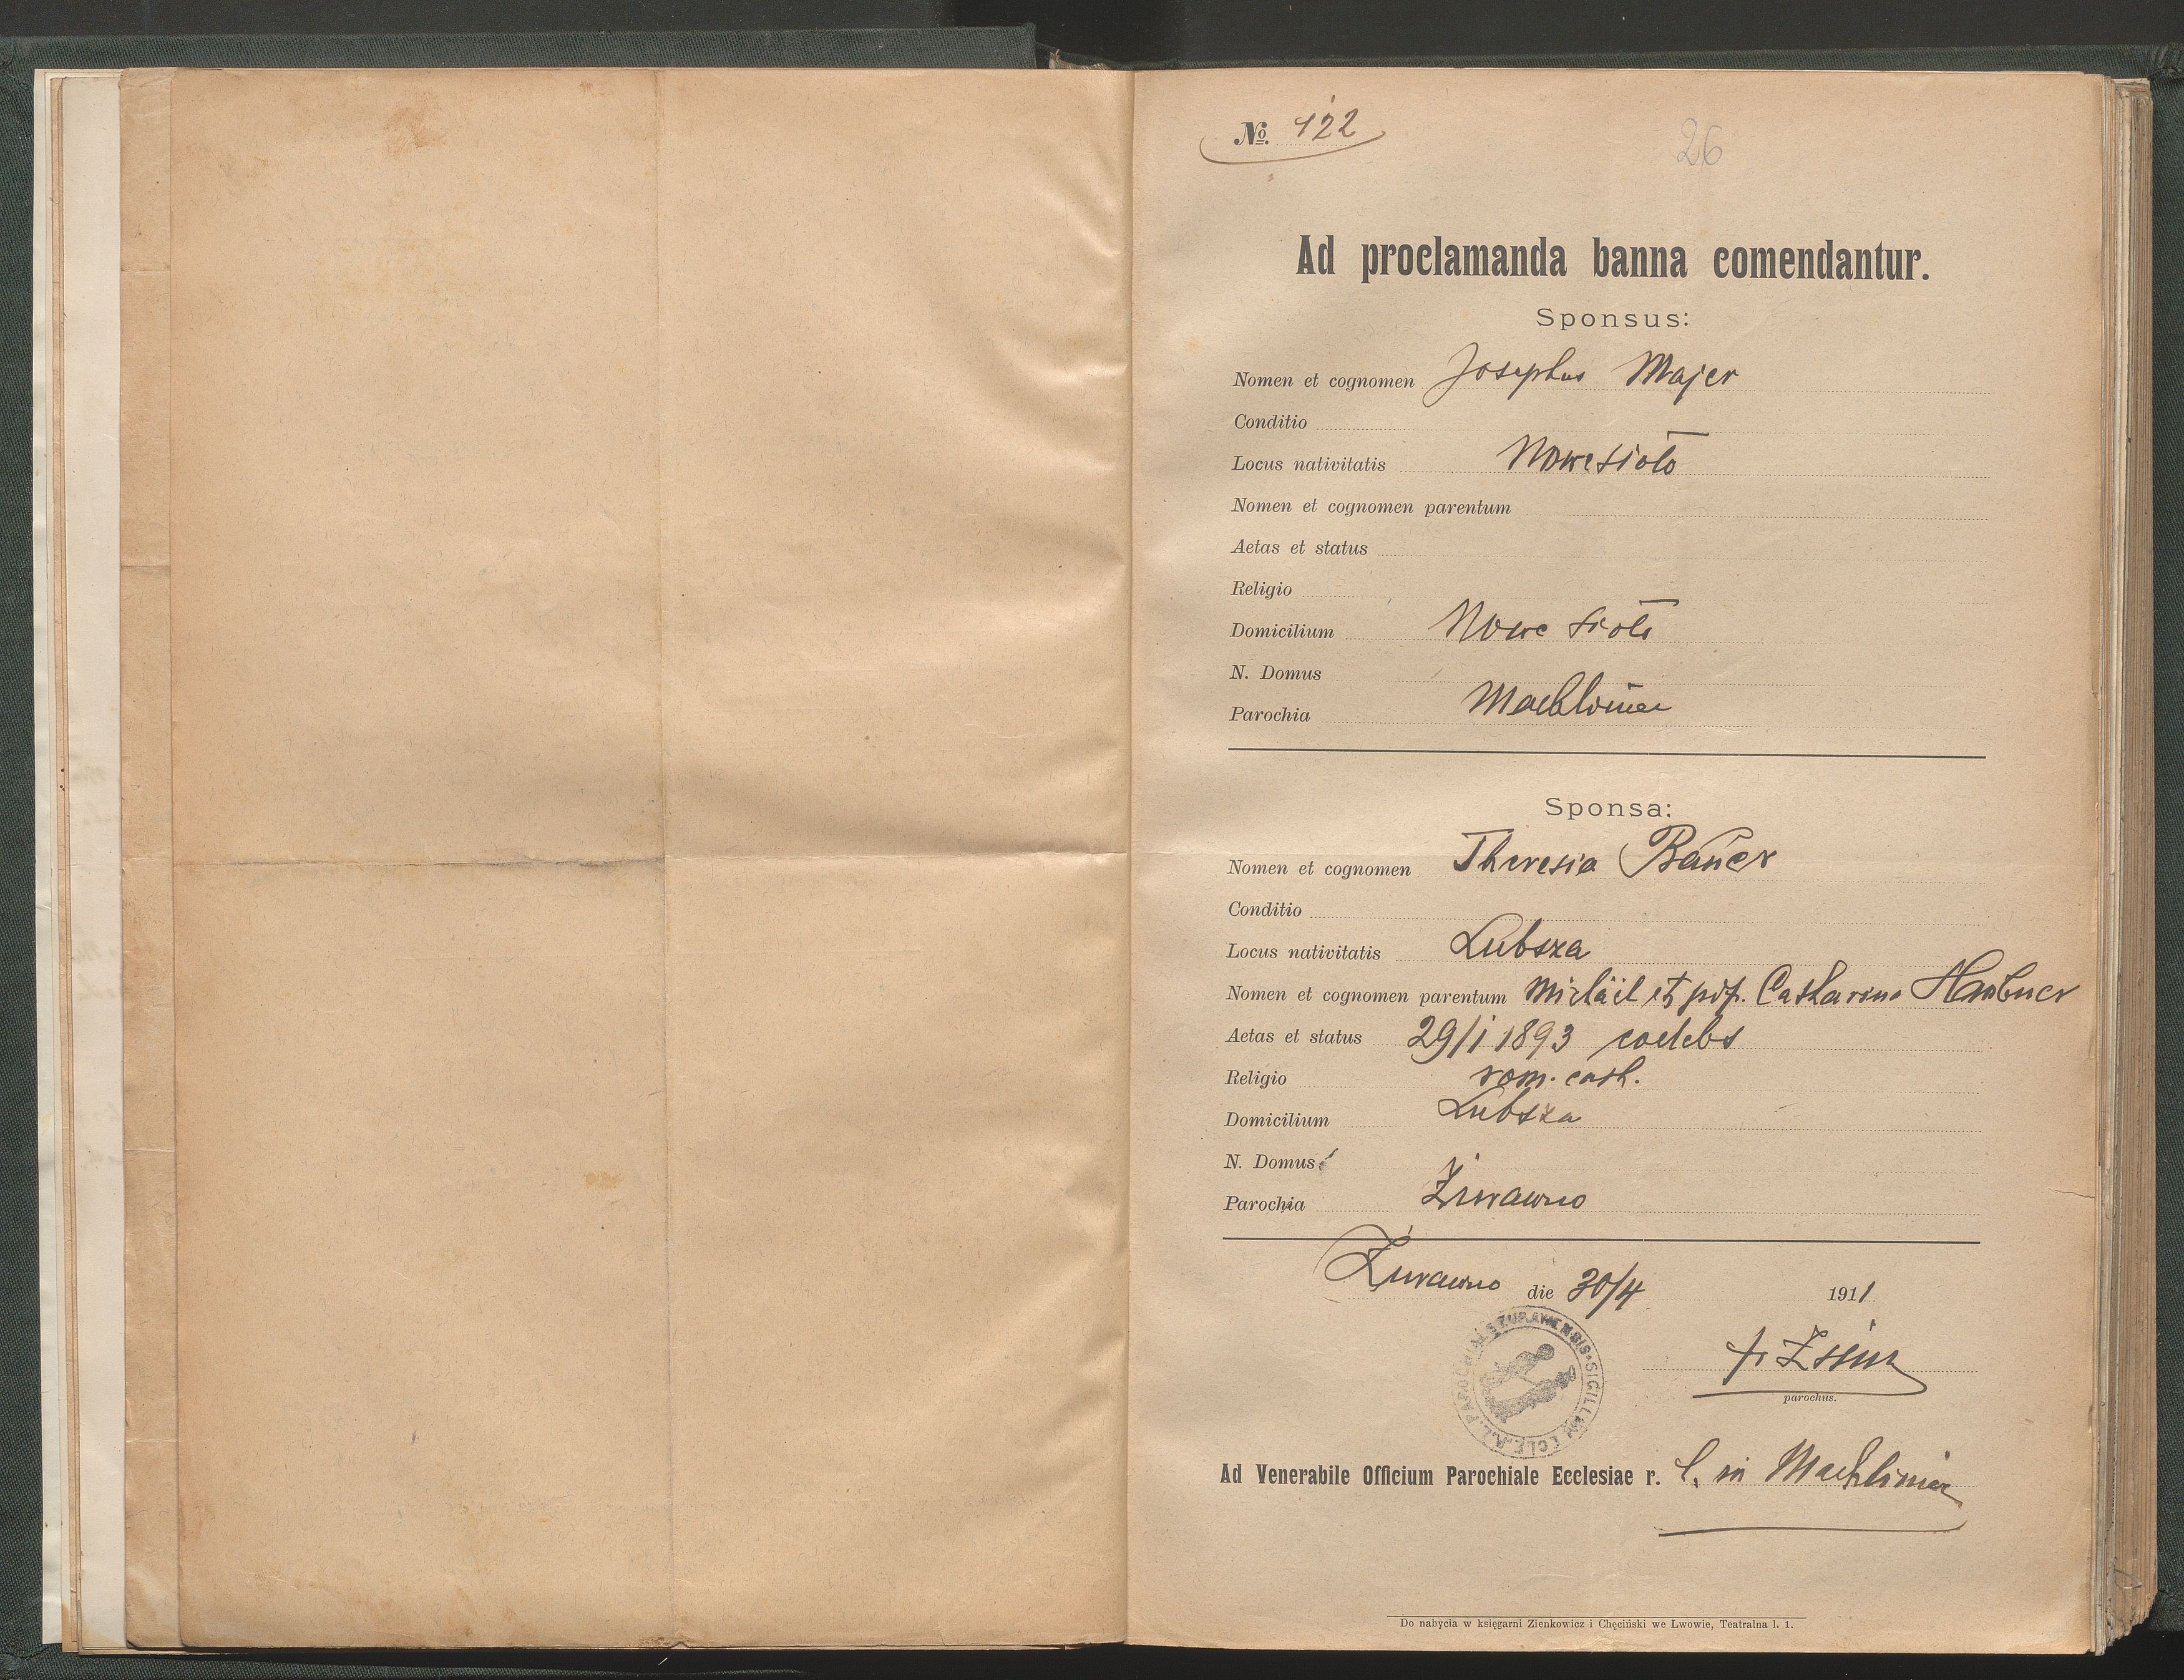 No. 122
26
Ad proclamanda banna comendantur.
Sponsus:
Nomen et cognomen Josephus Majer
Conditio
Locus nativitatis Nowesioło
Nomen et cognomen parentum
Aetas et status
Religio
Domicilium Nowe sioło
N. Domus
Parochia Machliniec
Sponsa:
Nomen et cognomen Theresia Bauer
Conditio
Locus nativitatis Lubsza
Nomen et cognomen parentum Michäel et Catharina Haobner
Aetas et status 29/1 1893 coelebs
Religio rom. cath.
Domicilium Lubsza
N. Domus
Parochia Żurawno
Żurawno die 30/4 1911
parochus.
Ad Venerabile Officium Parochiale Ecclesiae r. l. in Machliniec
Do nabycia w księgarni Zienkowicz i Chęciński we Lwowie, Teatralna l. 1.